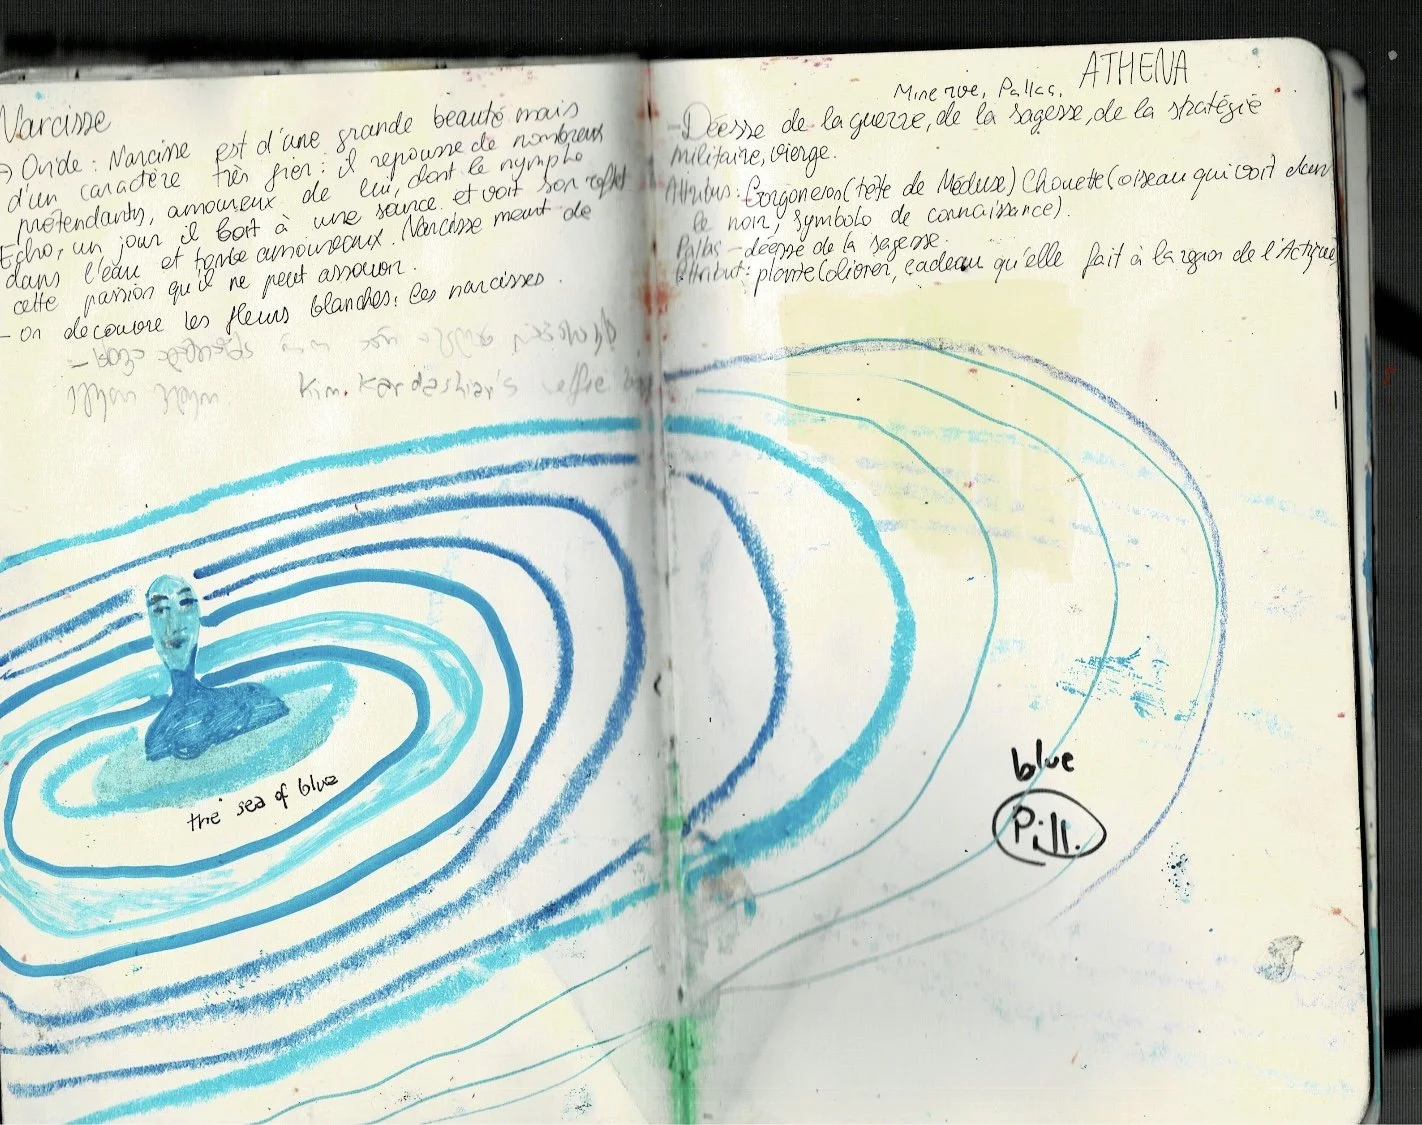 Narcisse
→ Ovide : Narcisse est d'une grande beauté mais
d'un caractère très fier : il repousse de nombreux
prétendants, amoureux de lui, dont la nymphe
Echo, un jour il boit à une source et voit son reflet
dans l'eau et tombe amoureaux. Narcisse meurt de
cette passion qu'il ne peut assouvir.
- on decouvre les fleurs blanches : les narcisses.
Kim Kardashian's selfie
the sea of blue
ATHENA
Minerve, Pallas,
- Déesse de la guerre, de la sagesse, de la stratégie
militaire, vierge.
Attributs : Gorgoneion (tête de Méduse) Chouette (oiseau qui voit dans
le noir, symbole de connaissance).
Pallas - déesse de la sagesse.
Attribut : plante (olivier, cadeau qu'elle fait à la region de l'Actique
blue
Pill.